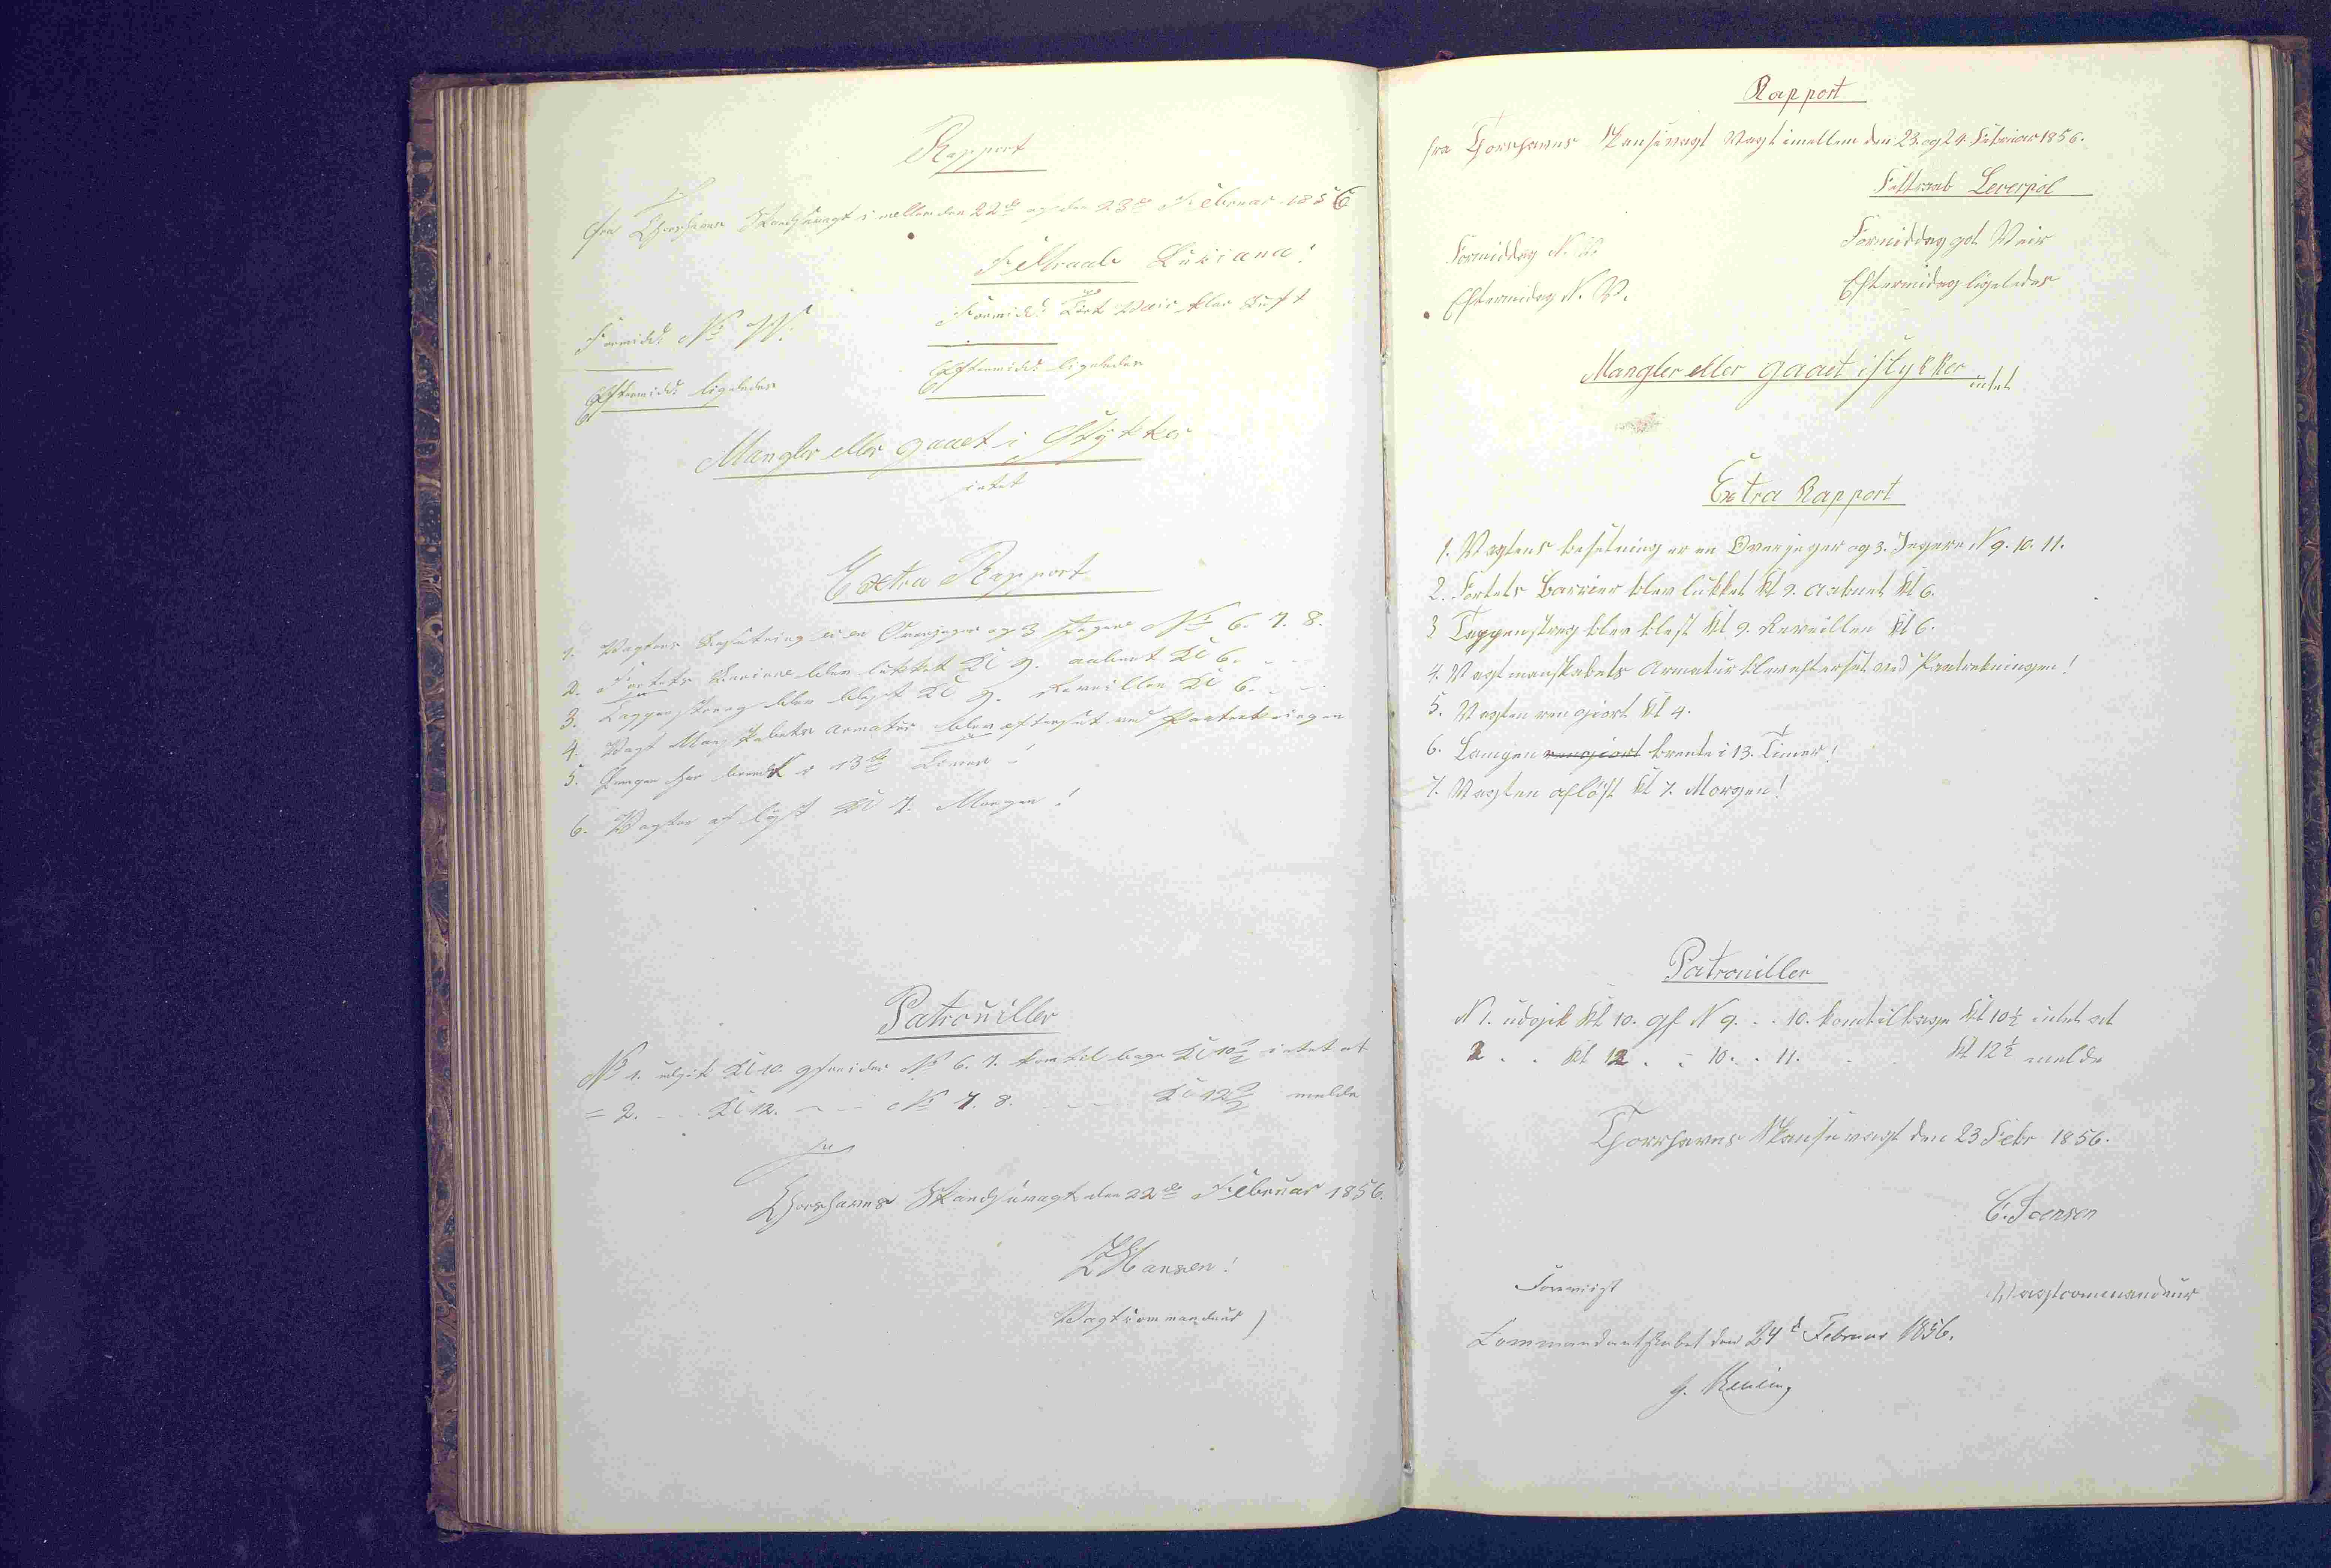 Rapport
fra Thorshavns Skandsevagt i mellem den 22de og den 23de Februar 1856
Feltraab Luisiana!
Formidd: No W.
Formidd: Tört Veir klar Luft
Eftermidd: ligeledes
Eftermidd: ligeledes
Mangler eller gaaet i Stykker
intet
Extra Rapport
1. Vagtens Besetning er en Overjæger og 3 Jægere No 6. 7. 8.
2. Fortets Bariere blev lukket Kl 9. aabnet Kl 6.
3. Tappenstreg blev blæst Kl 9. Reveillen Kl 6.
4. Vagt Manskabets Armatur blev efterset ved Fratrekningen
5. Lampen har brendt i 13de Timer!
6. Vagten af löst Kl 7. Morgen!
Patrouiller
No 1. udgik Kl 10. gfreider No 6. 7. kom til bage Kl 10½ intet at
= 2. - - Kl 12. - - No 7. 8. - - Kl 12½ melde
Thorshavns Skandsevagt den 22de Februar 1856.
Hansen!
Vagtcommandeur)
Rapport
fra Thorshavns Skansevagt Vagt imellem den 23. og 24. Februar 1856.
Feltraab Leverpol
Formiddag N. W.
Formiddag got Veir
Eftermidag N. W.
Eftermidag ligeledes
Mangler eller gaaet istykker intet
Extra Rapport
1. Vagtens besetning er en Overjeger og 3. Jegere N 9. 10. 11.
2. Fortets Barrier blev lukket Kl 9. aabnet Kl 6.
3 Tappenstreg blev blest Kl 9. Reveillen Kl 6.
4. Vagtmanskabets Armatur blev efterset ved Fratrekningen!
5. Vagten rengiort Kl 4.
6. Lampen rengiort brente i 13. Timer!
7. Vagten aflöst Kl 7. Morgen!
Patrouiller
N 1. udgik Kl 10. gf N 9. . . 10. komtilbage Kl 10½ intet at
2 . . Kl 12 . . 10. . 11. . . Kl 12½ melde
Thorshavns Skansevagt den 23 Febr 1856.
C. Joensen
Foreviist
Vagtcommandeur
Commandantskabet den 24d Februar 1856.